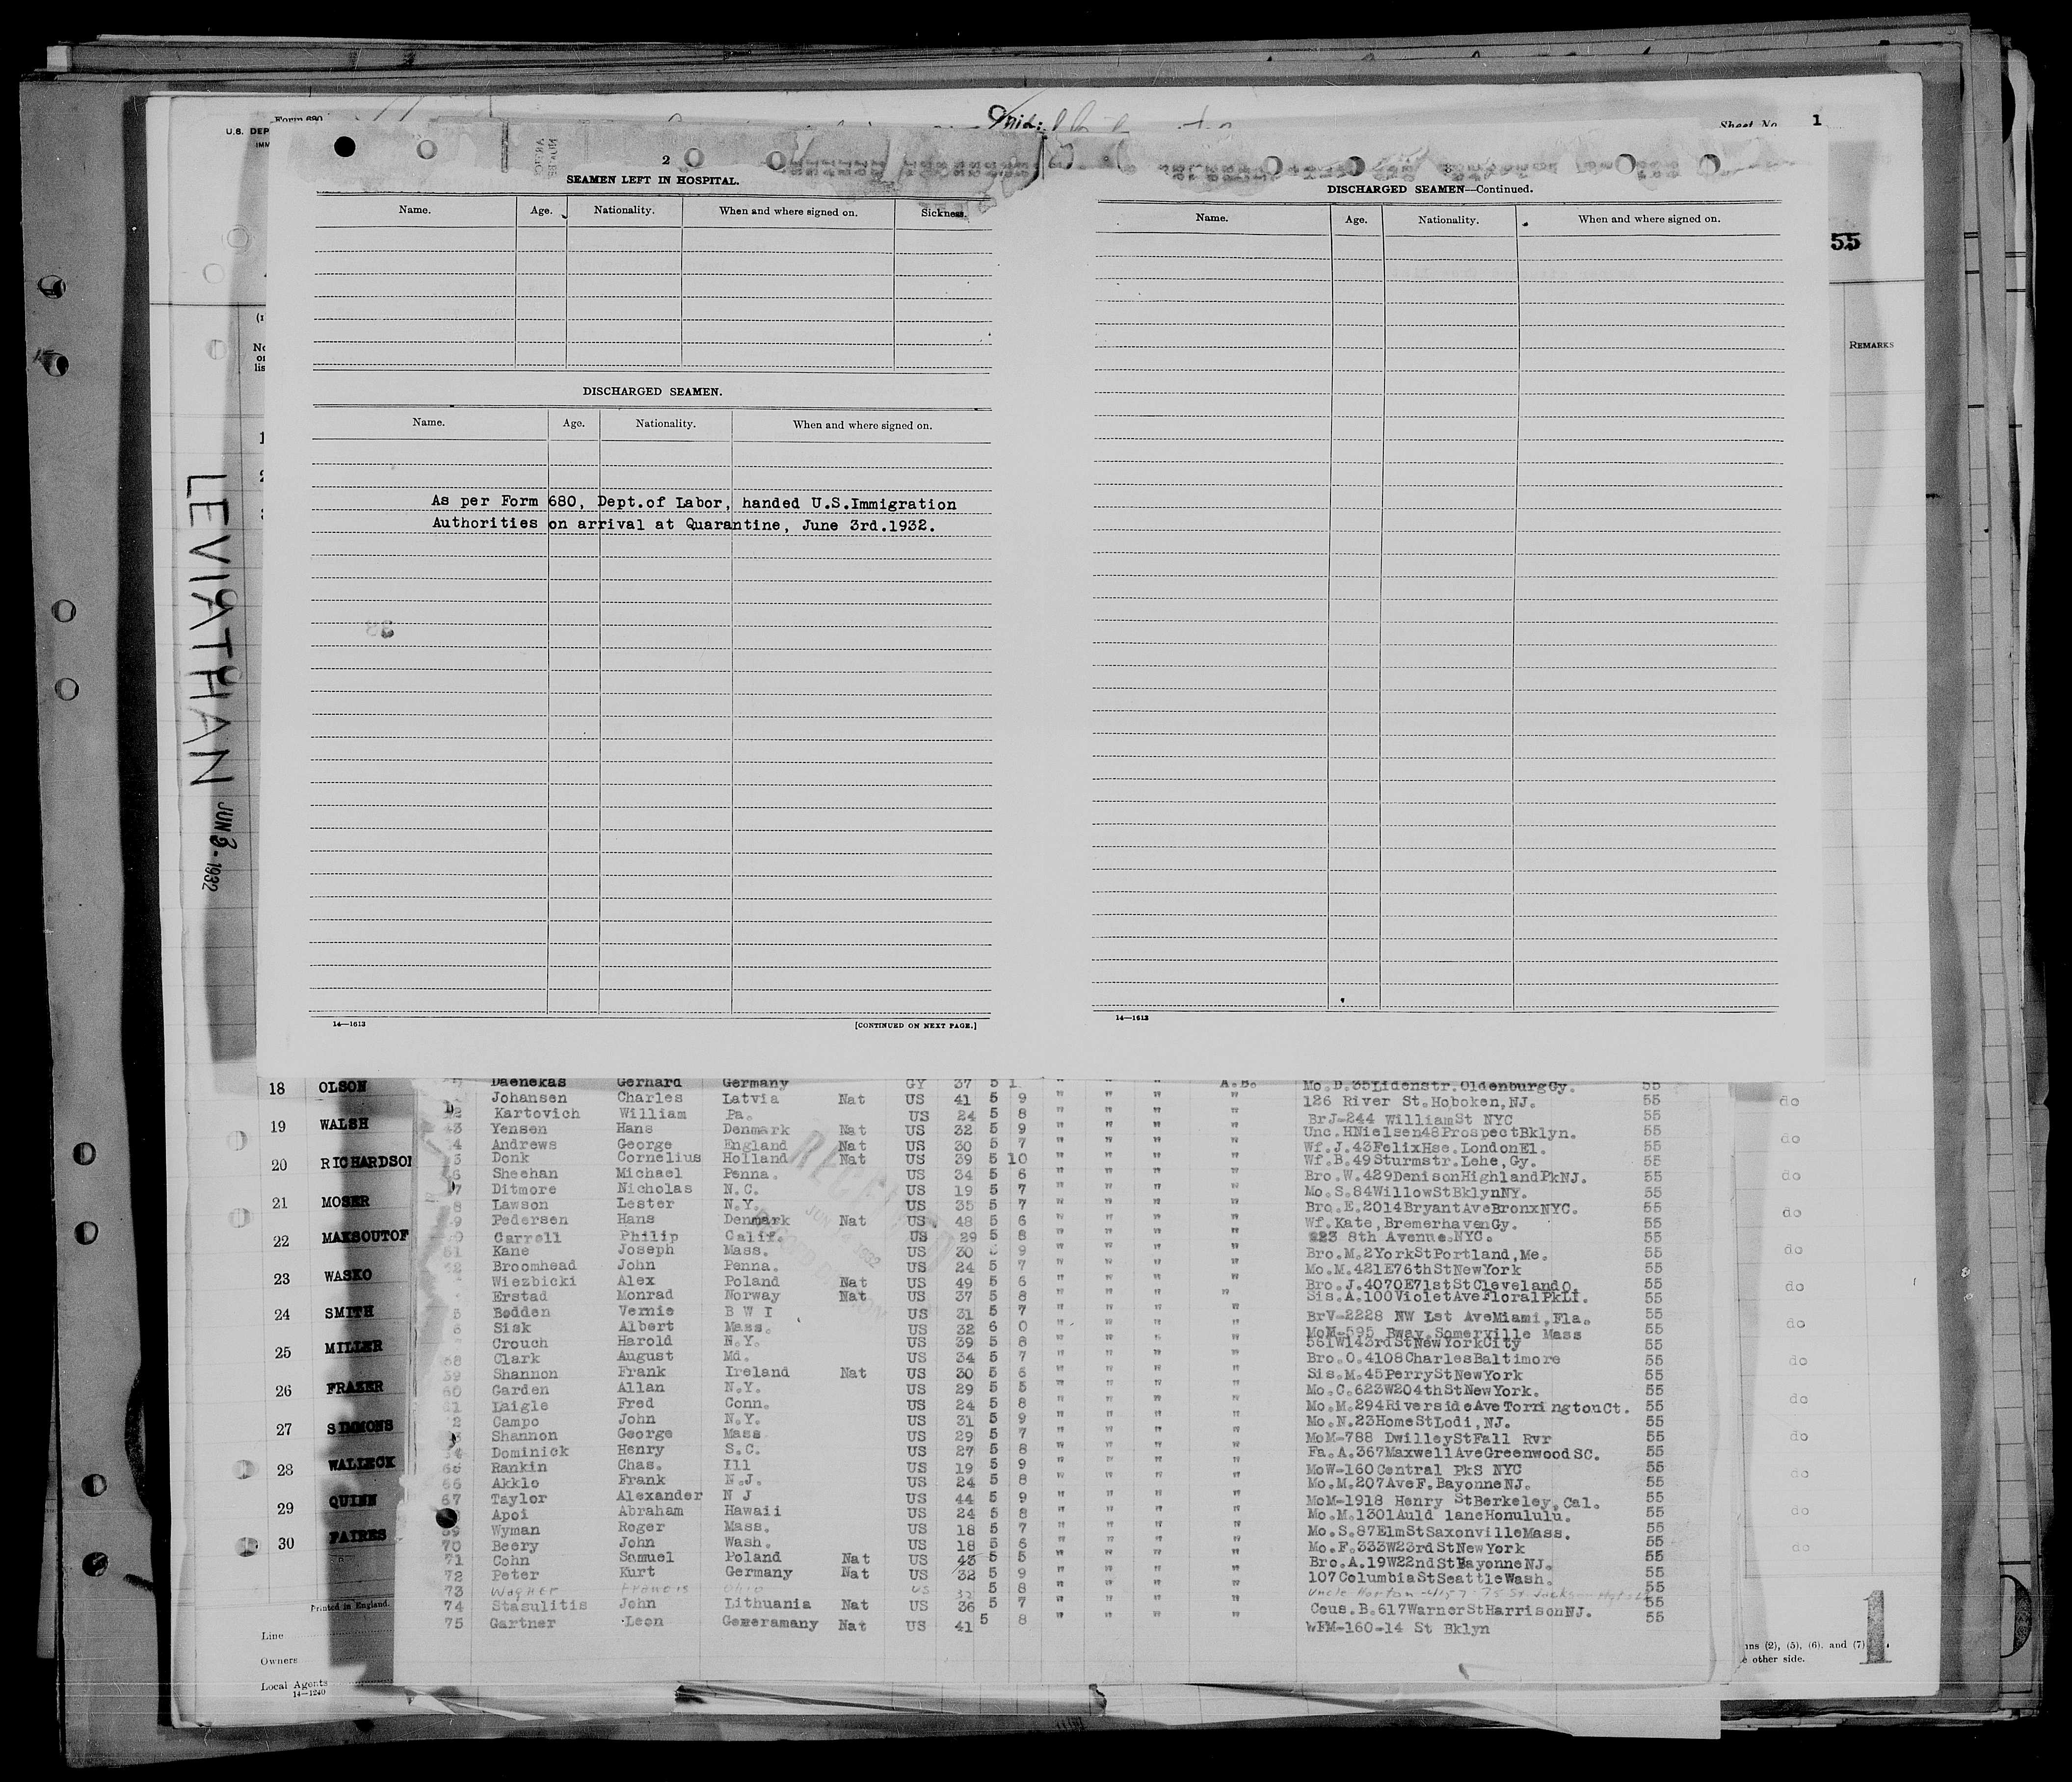 Form 680
U.S. DEP
Sheet No. 1
2
SEAMEN LEFT IN HOSPITAL.
Name. Age. Nationality. When and where signed on. Sickness.
DISCHARGED SEAMEN.
Name. Age. Nationality. When and where signed on.
As per Form 680, Dept.of Labor, handed U.S.Immigration
Authorities on arrival at Quarantine, June 3rd.1932.
14—1613 [CONTINUED ON NEXT PAGE.]
3
DISCHARGED SEAMEN—Continued.
Name. Age. Nationality. When and where signed on.
14—1613
55
REMARKS
LEVIATHAN JUN 3 - 1932
18 OLSON
19 WALSH
20 RICHARDSON
21 MOSER
22 MAKSOUTOF
23 WASKO
24 SMITH
25 MILLER
26 FRAZER
27 SIMMONS
28 WALLECK
29 QUINN
30 FAIRES
Daenekas Gerhard Germany GY 37 5 1 " " " A.B. Mo.D.35Lidenstr.OldenburgGy. 55
Johansen Charles Latvia Nat US 41 5 9 " " " " 126 River St.Hoboken,NJ. 55
Kartovich William Pa. US 24 5 8 " " " " BrJ-244 WilliamSt NYC 55
43 Yensen Hans Denmark Nat US 32 5 9 " " " " Unc.HNielsen48ProspectBklyn. 55
4 Andrews George England Nat US 30 5 7 " " " " Wf.J.43FelixHse.LondonEl. 55
5 Donk Cornelius Holland Nat US 39 5 10 " " " " Wf.B.49Sturmstr.Lehe,Gy. 55
6 Sheehan Michael Penna. US 34 5 6 " " " " Bro.W.429DenisonHighlandPkNJ. 55
7 Ditmore Nicholas N.C. US 19 5 7 " " " " Mo.S.84WillowStBklynNY. 55
8 Lawson Lester N.Y. US 35 5 7 " " " " Bro.E.2014BryantAveBronxNYC. 55
9 Pedersen Hans Denmark Nat US 48 5 6 " " " " Wf.Kate,BremerhavenGy. 55
0 Carroll Philip Calif. US 29 5 8 " " " " 223 8th Avenue.NYC. 55
51 Kane Joseph Mass. US 30 9 " " " " Bro.M.2YorkStPortland,Me. 55
52 Broomhead John Penna. US 24 5 7 " " " " Mo.M.421E76thStNewYork 55
Wiezbicki Alex Poland Nat US 49 5 6 " " " " Bro.J.4070E71stStClevelandO. 55
Erstad Monrad Norway Nat US 37 5 8 " " " " Sis.A.100VioletAveFloralPkLI. 55
5 Bodden Vernie B W I US 31 5 7 " " " " BrV-2228 NW Lst AveMiami,Fla. 55
6 Sisk Albert Mass. US 32 6 0 " " " " MoM-595 Bway.Somerville Mass 55
Crouch Harold N.Y. US 39 5 8 " " " " 561W143rdStNewYorkCity 55
58 Clark August Md. US 34 5 7 " " " " Bro.O.4108CharlesBaltimore 55
59 Shannon Frank Ireland Nat US 30 5 6 " " " " Sis.M.45PerryStNewYork 55
60 Garden Allan N.Y. US 29 5 5 " " " " Mo.C.623W204thStNewYork. 55
61 Laigle Fred Conn. US 24 5 8 " " " " Mo.M.294RiversideAveTorringtonCt. 55
2 Campo John N.Y. US 31 5 9 " " " " Mo.N.23HomeStLodi,NJ. 55
3 Shannon George Mass US 29 5 7 " " " " MoM-788 DwilleyStFall Rvr 55
64 Dominick Henry S.C. US 27 5 8 " " " " Fa.A.367MaxwellAveGreenwoodSC. 55
65 Rankin Chas. Ill US 19 5 9 " " " " MoW-160Central PkS NYC 55
66 Akklo Frank N.J. US 24 5 8 " " " " Mo.M.207AveF.BayonneNJ. 55
67 Taylor Alexander N J US 44 5 9 " " " " MoM-1918 Henry StBerkeley,Cal. 55
Apoi Abraham Hawaii US 24 5 8 " " " " Mo.M.1301Auld laneHonululu. 55
69 Wyman Roger Mass. US 18 5 7 " " " " Mo.S.87ElmStSaxonvilleMass. 55
70 Beery John Wash. US 18 5 6 " " " " Mo.F.333W23rdStNewYork 55
71 Cohn Samuel Poland Nat US 43 5 5 " " " " Bro.A.19W22ndStBayonneNJ. 55
72 Peter Kurt Germany Nat US 32 5 9 " " " " 107ColumbiaStSeattleWash. 55
73 Wagner Francis Ohio US 32 5 8 " " " " Uncle Horton 55
74 Stasulitis John Lithuania Nat US 36 5 7 " " " " Cous.B.617WarnerStHarrisonNJ. 55
75 Gartner Leon Gemeramany Nat US 41 5 8 " " " " WFM-160-14 St Bklyn 55
do
do
do
do
do
do
do
do
do
do
do
do
do
RECEIVED
JUN 1932
Printed in England.
Line
Owners
Local Agents
14—1240
ns (2), (5), (6), and (7)
e other side.
1